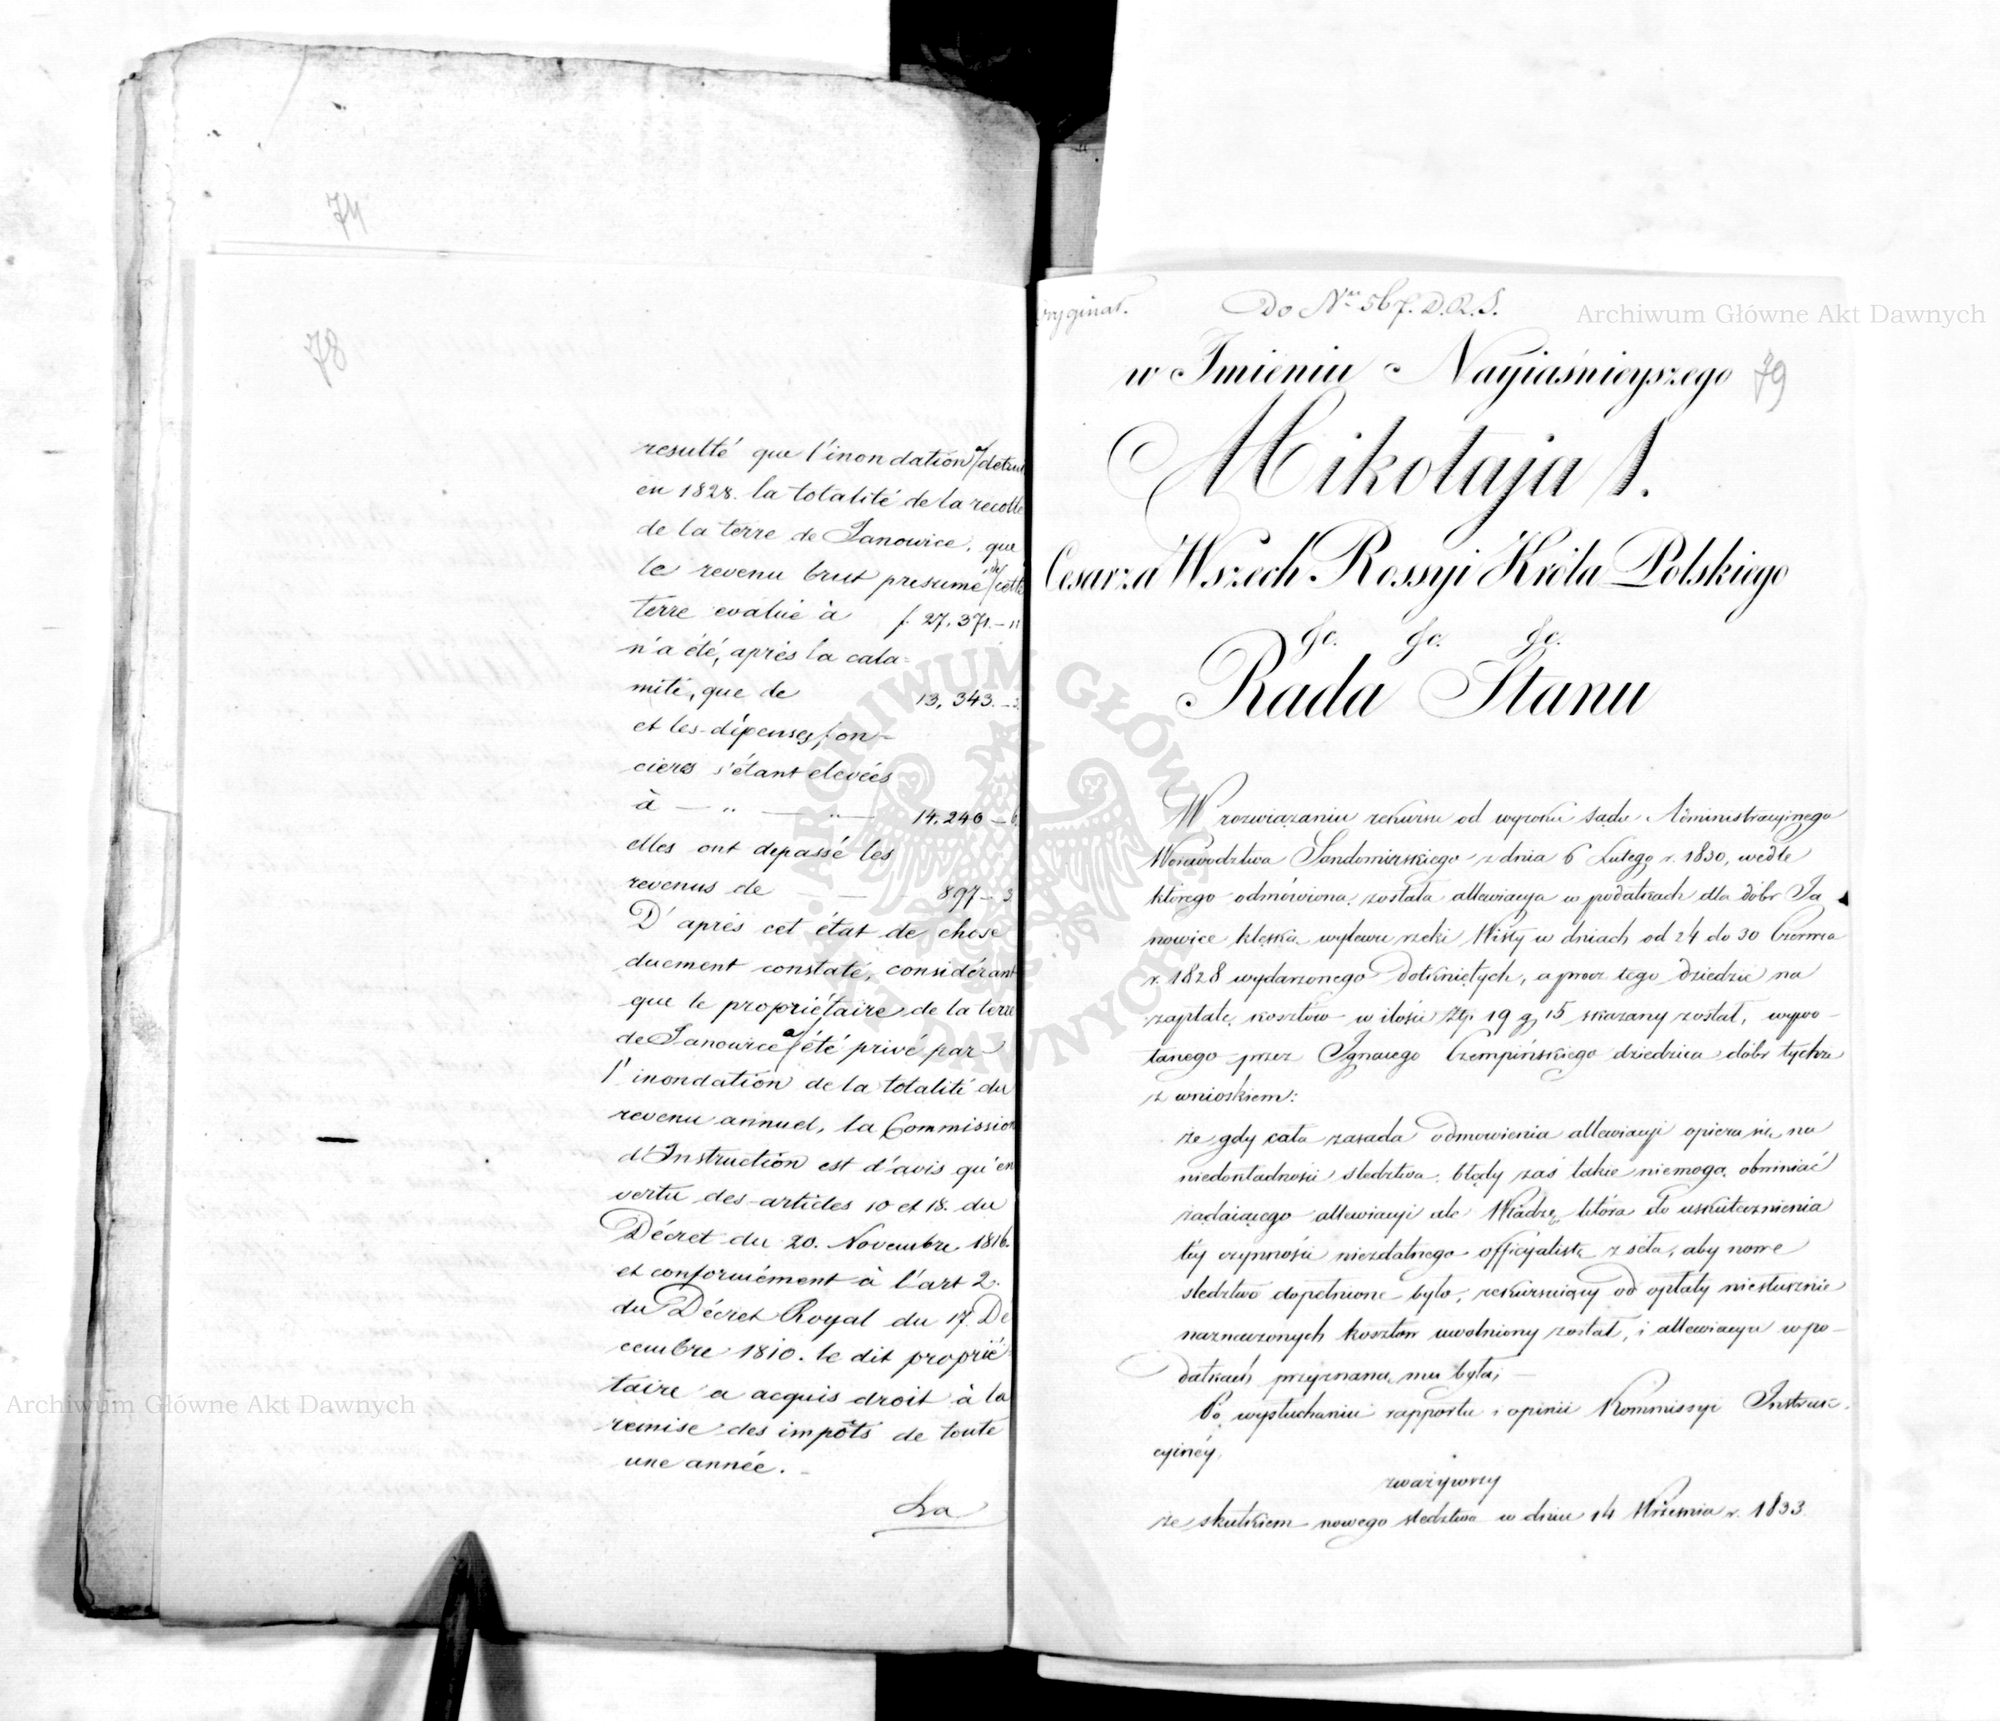 74
78
resulté que l'inondation a detrui
en 1828. la totalité de la recolte
de la terre de Janowice, que
le revenu brut presumé de cette
terre evalué à f. 27,371.–11
n'a été, après la cala=
mité, que de 13,343.–3
et les dépenses fon=
cieres s'étant elevées
à — „ — „ — 14.240–6
elles ont depassé les
revenus de — — 897–3
D'après cet état de chose
duement constaté, considérant
que le propriétaire de la terre
de Janowice a été privé par
l'inondation de la totalité du
revenu annuel, la Commission
d'Instruction est d'avis qu'en
vertu des articles 10 et 18. du
Décret du 20. Novembre 1816.
et conformément à l'art 2.
du Décret Royal du 17. Dé
cembre 1810. le dit proprié
taire a acquis droit à la
remise des impôts de toute
une année. –
La
oryginał.
Do Nru 567. D.R.S.
79
w Imieniu Nayiaśnieyszego
Mikołaja I.
Cesarza Wszech Rossyi Króla Polskiego
&c. &c. &c.
Rada Stanu
W rozwiązaniu rekursu od wyroku Sądu Administracyjnego
Woiewodztwa Sandomirskiego z dnia 6 Lutego r. 1830, wedle
którego odmówiona została allewiacya w podatkach dla dóbr Ja
nowice klęską wylewu rzeki Wisły w dniach od 24 do 30 Czerwca
r. 1828 wydarzonego dotkniętych, a przez tego dziedzic na
zapłatę kosztów w ilości Złp. 19 g. 15 skazany został, wywo–
łanego przez Ignacego Czempińskiego dziedzica dóbr tychże
z wnioskiem:
że gdy cała zasada odmowienia allewiacyi opiera się na
niedokładności śledztwa, błędy zaś takie niemogą obwiniać
żądaiącego allewiacyi ale Władzę która do uskutecznienia
téy czynności niezdatnego officyalistę zesłała, aby nowe
śledztwo dopełnione było, rekursuiący od opłaty niesłusznie
naznaczonych kosztów uwolniony został, i allewiacya w po–
datkach przyznaną mu była; –
Po wysłuchaniu rapportu i opinii Kommissyi Instruk–
cyinéy,
zważywszy
że skutkiem nowego śledztwa w dniu 14 Września r. 1833
Archiwum Główne Akt Dawnych
Archiwum Główne Akt Dawnych
ARCHIWUM GŁÓWNE AKT DAWNYCH